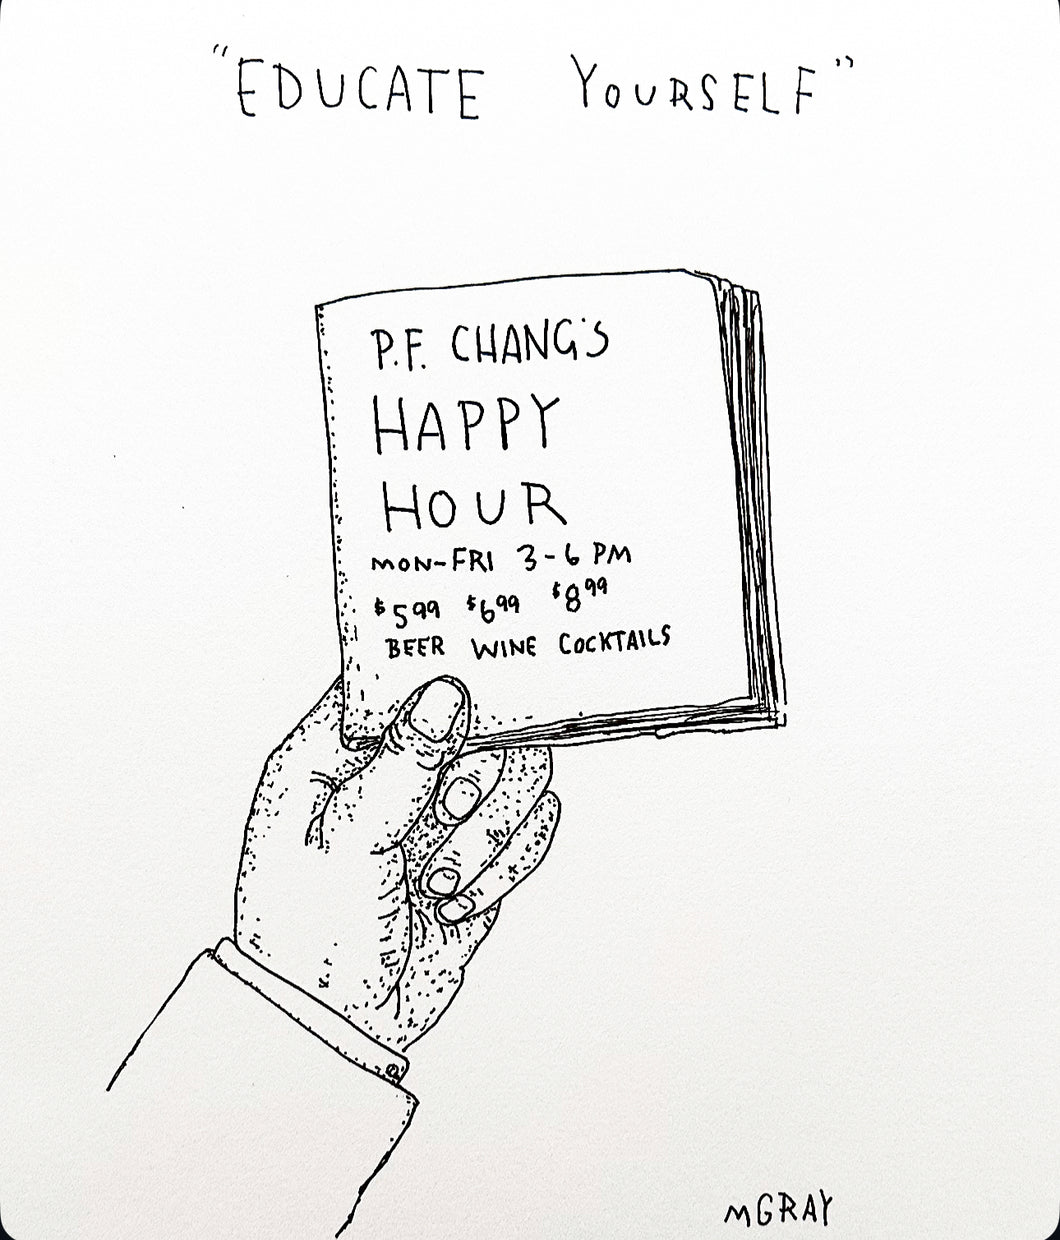 "EDUCATE YOURSELF"
P.F. CHANG'S
HAPPY
HOUR
MON-FRI 3-6 PM
$5.99 $6.99 $8.99
BEER WINE COCKTAILS
MGRAY